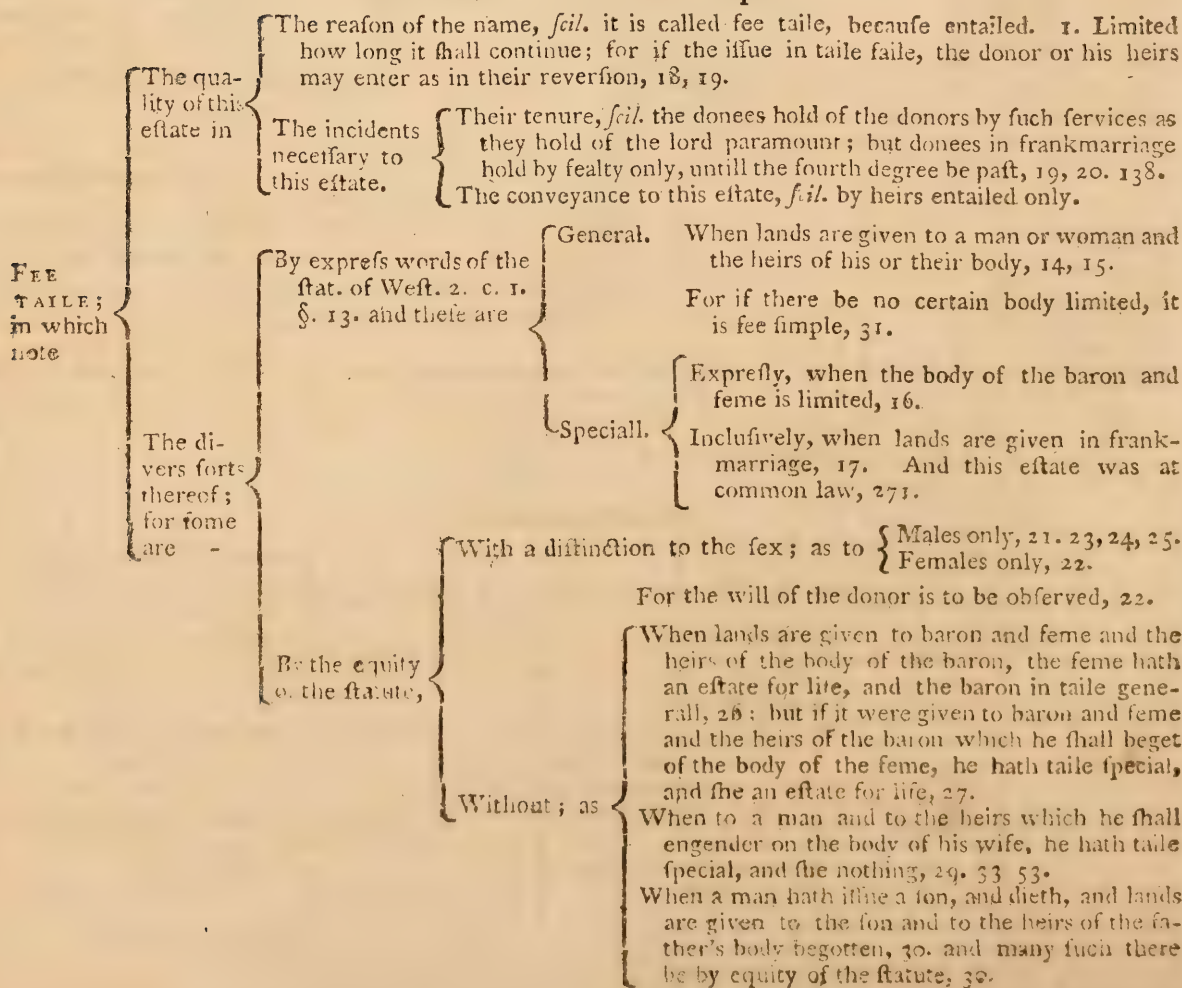 The reaſon of the name, ſcil. it is called fee taile, becauſe entailed. 1. Limited
how long it ſhall continue; for if the iſſue in taile faile, the donor or his heirs
may enter as in their reverſion, 18, 19.
The qua-
lity of this
eſtate in
The incidents
neceſſary to
this eſtate.
Their tenure, ſcil. the donees hold of the donors by ſuch ſervices as
they hold of the lord paramount; but donees in frankmarriage
hold by fealty only, untill the fourth degree be paſt, 19, 20. 138.
The conveyance to this eſtate, ſcil. by heirs entailed only.
FEE
TAILE;
in which
note
The di-
vers ſorts
thereof;
for ſome
are -
By expreſs words of the
ſtat. of Weſt. 2. c. 1.
§. 13. and theſe are
General. When lands are given to a man or woman and
the heirs of his or their body, 14, 15.
For if there be no certain body limited, it
is fee ſimple, 31.
Speciall.
Expreſly, when the body of the baron and
feme is limited, 16.
Incluſively, when lands are given in frank-
marriage, 17. And this eſtate was at
common law, 271.
By the equity
of the ſtatute,
With a diſtinction to the ſex; as to
Males only, 21. 23, 24, 25.
Females only, 22.
For the will of the donor is to be obſerved, 22.
Without; as
When lands are given to baron and feme and the
heirs of the body of the baron, the feme hath
an eſtate for life, and the baron in taile gene-
rall, 26: but if it were given to baron and feme
and the heirs of the baron which he ſhall beget
of the body of the feme, he hath taile ſpecial,
and ſhe an eſtate for life, 27.
When to a man and to the heirs which he ſhall
engender on the body of his wife, he hath taile
ſpecial, and ſhe nothing, 29. 33 53.
When a man hath iſſue a ſon, and dieth, and lands
are given to the ſon and to the heirs of the fa-
ther's body begotten, 30. and many ſuch there
be by equity of the ſtatute, 30.